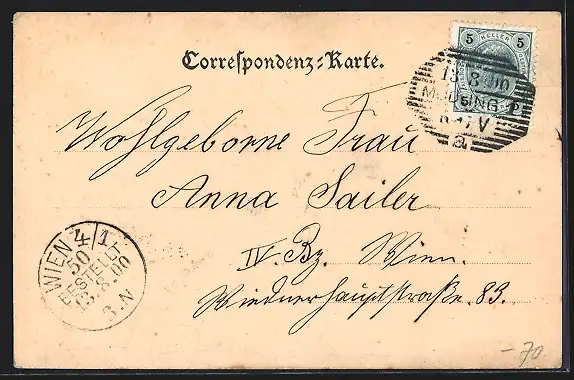 Correspondenz-Karte.
5 HELLER 5
13.8.00
MÖDLING
a
Wohlgeborne Frau
Anna Sailer
IV. Bz. Wien.
Wiednerhauptstraße. 83.
WIEN 4/1
50
BESTELLT
13.8.00
3.N
- 70